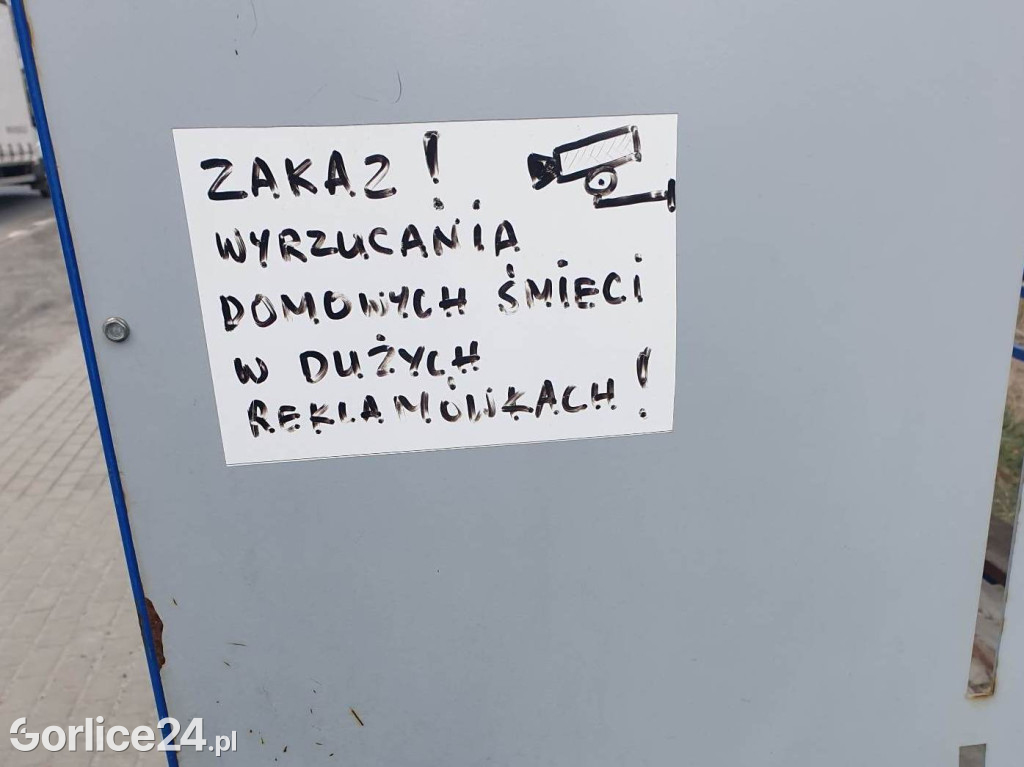 ZAKAZ!
WYRZUCANIA
DOMOWYCH ŚMIECI
W DUŻYCH
REKLAMÓWKACH!
Gorlice24.pl